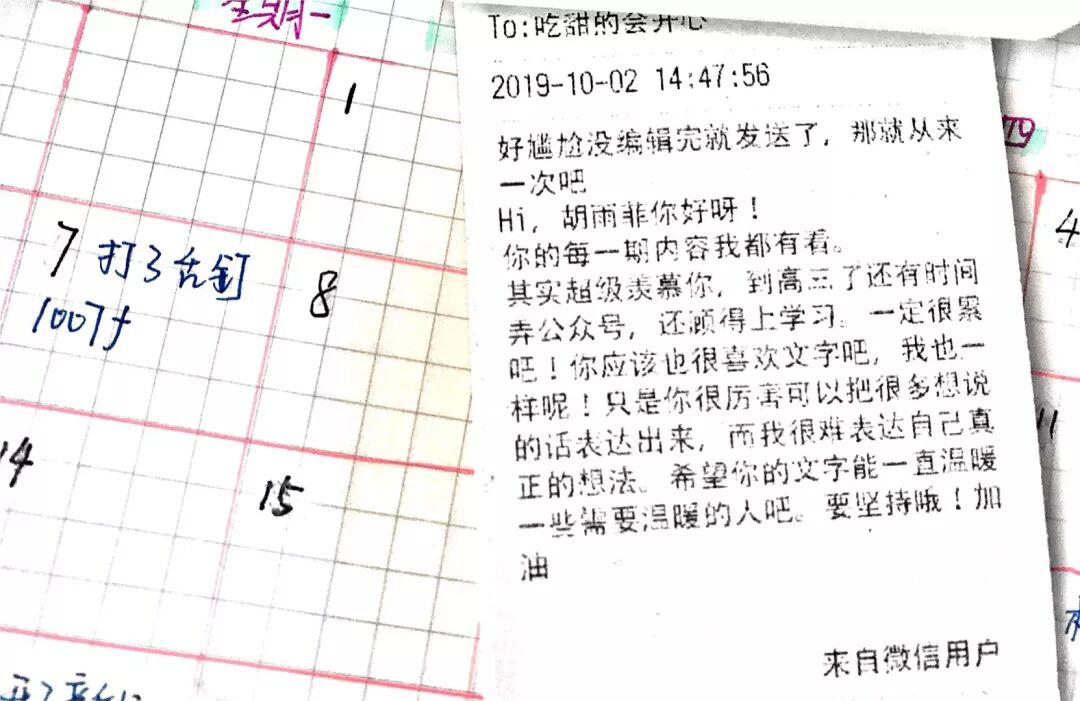 星期一
1
7 打了舌钉
100万f
8
14
15
To:吃甜的会开心
2019-10-02 14:47:56
好尴尬没编辑完就发送了，那就从来
一次吧
Hi，胡雨菲你好呀！
你的每一期内容我都有看。
其实超级羡慕你，到高三了还有时间
弄公众号，还顾得上学习。一定很累
吧！你应该也很喜欢文字吧，我也一
样呢！只是你很厉害可以把很多想说
的话表达出来，而我很难表达自己真
正的想法。希望你的文字能一直温暖
一些需要温暖的人吧。要坚持哦！加
油
来自微信用户
四
4
11